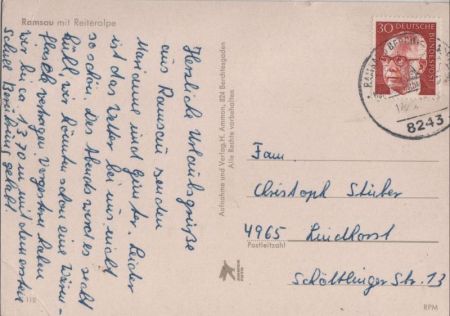 Ramsau mit Reiteralpe
Herzliche Urlaubsgrüße
aus Ramsau senden
Marianne und Günter. Leider
ist das Wetter bei uns nicht
so schön. Des Abends wird es recht
kühl, wir könnten schon eine
Flasche vertragen. Vergangen haben
wir bis ca. 1370 m mit dem ersten
gehabt.
Aufnahme und Verlag H. Ammon, 824 Berchtesgaden
Alle Rechte vorbehalten
30 DEUTSCHE BUNDESPOST
8243
Fam.
Christoph Stüber
4965 Lindhorst
Postleitzahl
Schöttlinger Str. 13
112
RPM